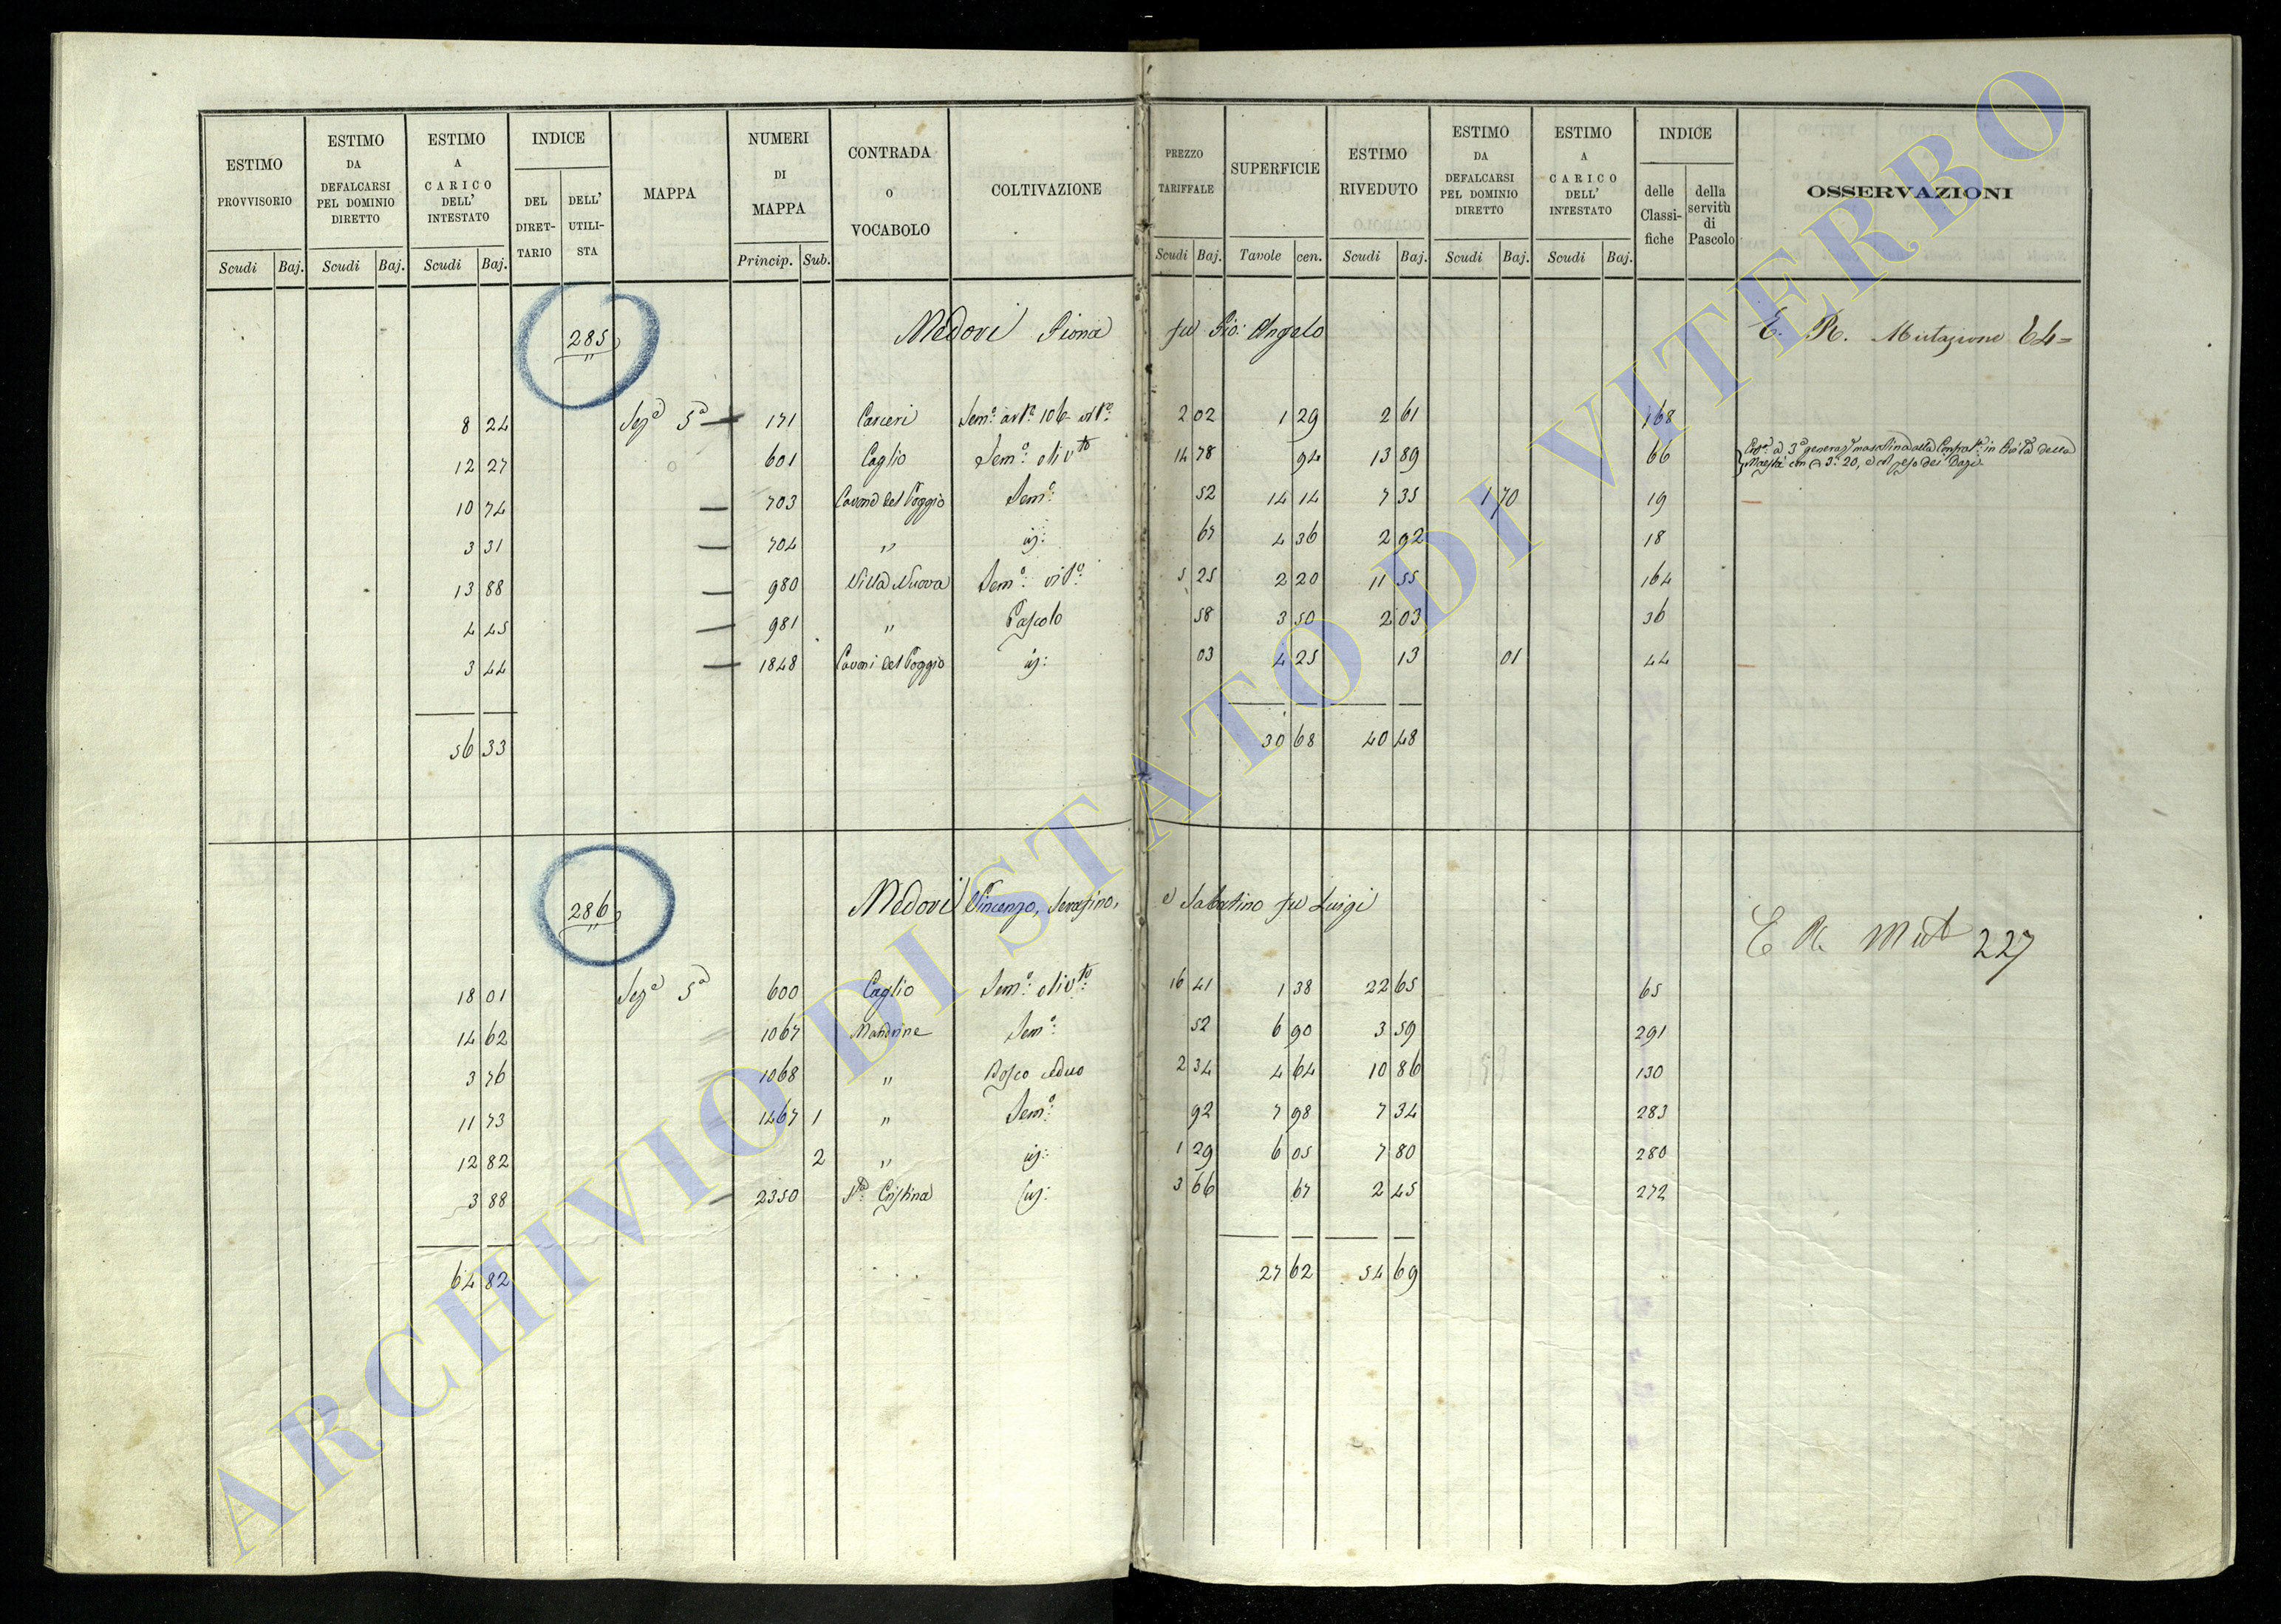 ESTIMO PROVVISORIO
ESTIMO DA DEFALCARSI PEL DOMINIO DIRETTO
ESTIMO A CARICO DELL' INTESTATO
INDICE
DEL DIRETTARIO
DELL' UTILISTA
MAPPA
NUMERI DI MAPPA
CONTRADA o VOCABOLO
COLTIVAZIONE
PREZZO TARIFFALE
SUPERFICIE
ESTIMO RIVEDUTO
ESTIMO DA DEFALCARSI PEL DOMINIO DIRETTO
ESTIMO A CARICO DELL' INTESTATO
INDICE
delle Classifiche
della servitù di Pascolo
OSSERVAZIONI
Scudi Baj. Scudi Baj. Scudi Baj. Princip. Sub. Scudi Baj. Tavole cen. Scudi Baj. Scudi Baj. Scudi Baj.
285 Medori fu Gio: Angelo E. R. Mutazione
8 24 Sez.e 5a 171 Carceri Sem.o 2 02 1 29 2 61 168
12 27 601 Caglio Sem.o oliv.to 14 78 94 13 89 66
10 74 703 Cavone del Poggio Sem.o 52 14 14 7 35 1 70 19
3 31 704 " id: 67 4 36 2 92 18
13 88 980 Villa Nuova Sem.o vit.o 5 25 2 20 11 55 164
4 45 981 " Pascolo 58 3 50 2 03 36
3 44 1848 Cavoni del Poggio id: 03 4 25 13 01 44
56 33 30 68 40 48
286 Medori Vincenzo, Serafino, e Sabatino fu Luigi E R Mut 227
18 01 Sez.e 5a 600 Caglio Sem.o oliv.to 16 41 1 38 22 65 65
14 62 1067 Mandrine Sem.o 52 6 90 3 59 291
3 76 1068 " Bosco ceduo 2 34 4 64 10 86 130
11 73 1467 1 " Sem.o 92 7 98 7 34 283
12 82 2 " id: 1 29 6 05 7 80 280
3 88 2350 S.ta Cristina id: 3 66 67 2 45 272
64 82 27 62 54 69
ARCHIVIO DI STATO DI VITERBO